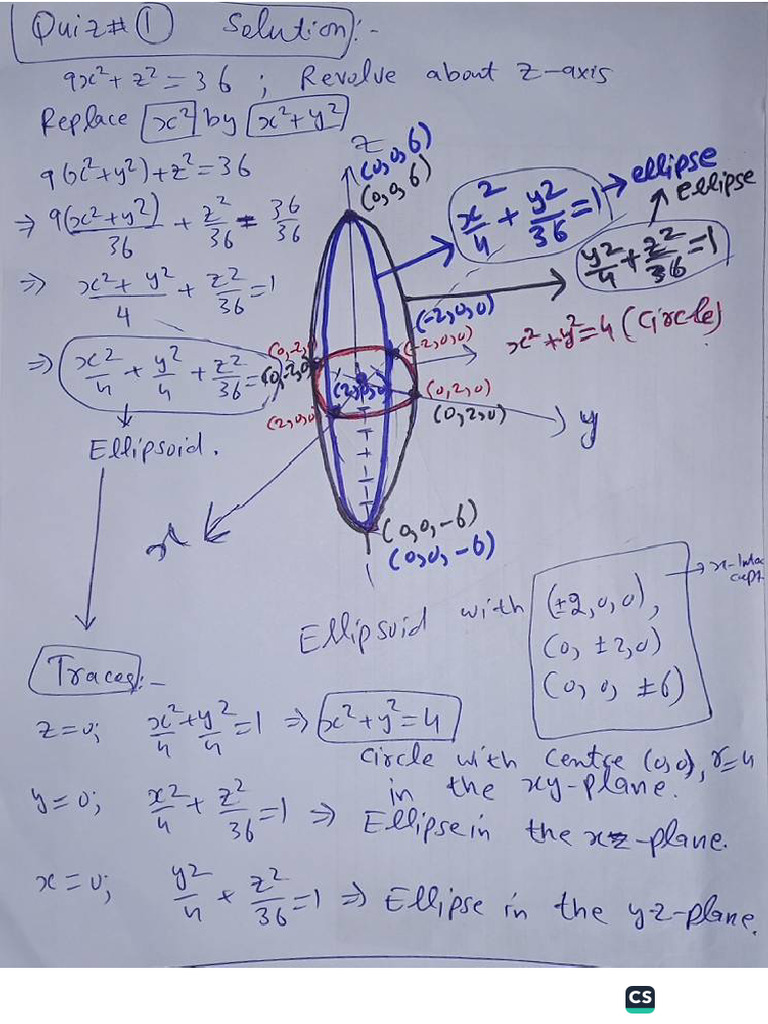 Quiz# ① Solution:-
9x²+z²=36 ; Revolve about z-axis
Replace x² by x²+y²
9(x²+y²)+z²=36
⇒ 9(x²+y²)/36 + z²/36 = 36/36
⇒ (x²+y²)/4 + z²/36 = 1
⇒ x²/4 + y²/4 + z²/36 = 1
Ellipsoid.
z
(0,0,6)
(0,0,6)
x²/4 + y²/36 = 1 → ellipse
ellipse
y²/4 + z²/36 = 1
(-2,0,0)
x²+y²=4 (circle)
(0,-2,0)
(0,-2,0)
(-2,0,0)
(2,0,0)
(0,2,0)
(2,0,0)
(0,2,0)
y
x
(0,0,-6)
(0,0,-6)
Ellipsoid with (±2,0,0),
(0, ±2,0)
(0, 0, ±6)
Traces:-
z=0; x²/4 + y²/4 = 1 ⇒ x²+y²=4
circle with centre (0,0), r=4
in the xy-plane.
y=0; x²/4 + z²/36 = 1 ⇒ Ellipse in the xz-plane.
x=0; y²/4 + z²/36 = 1 ⇒ Ellipse in the yz-plane.
CS